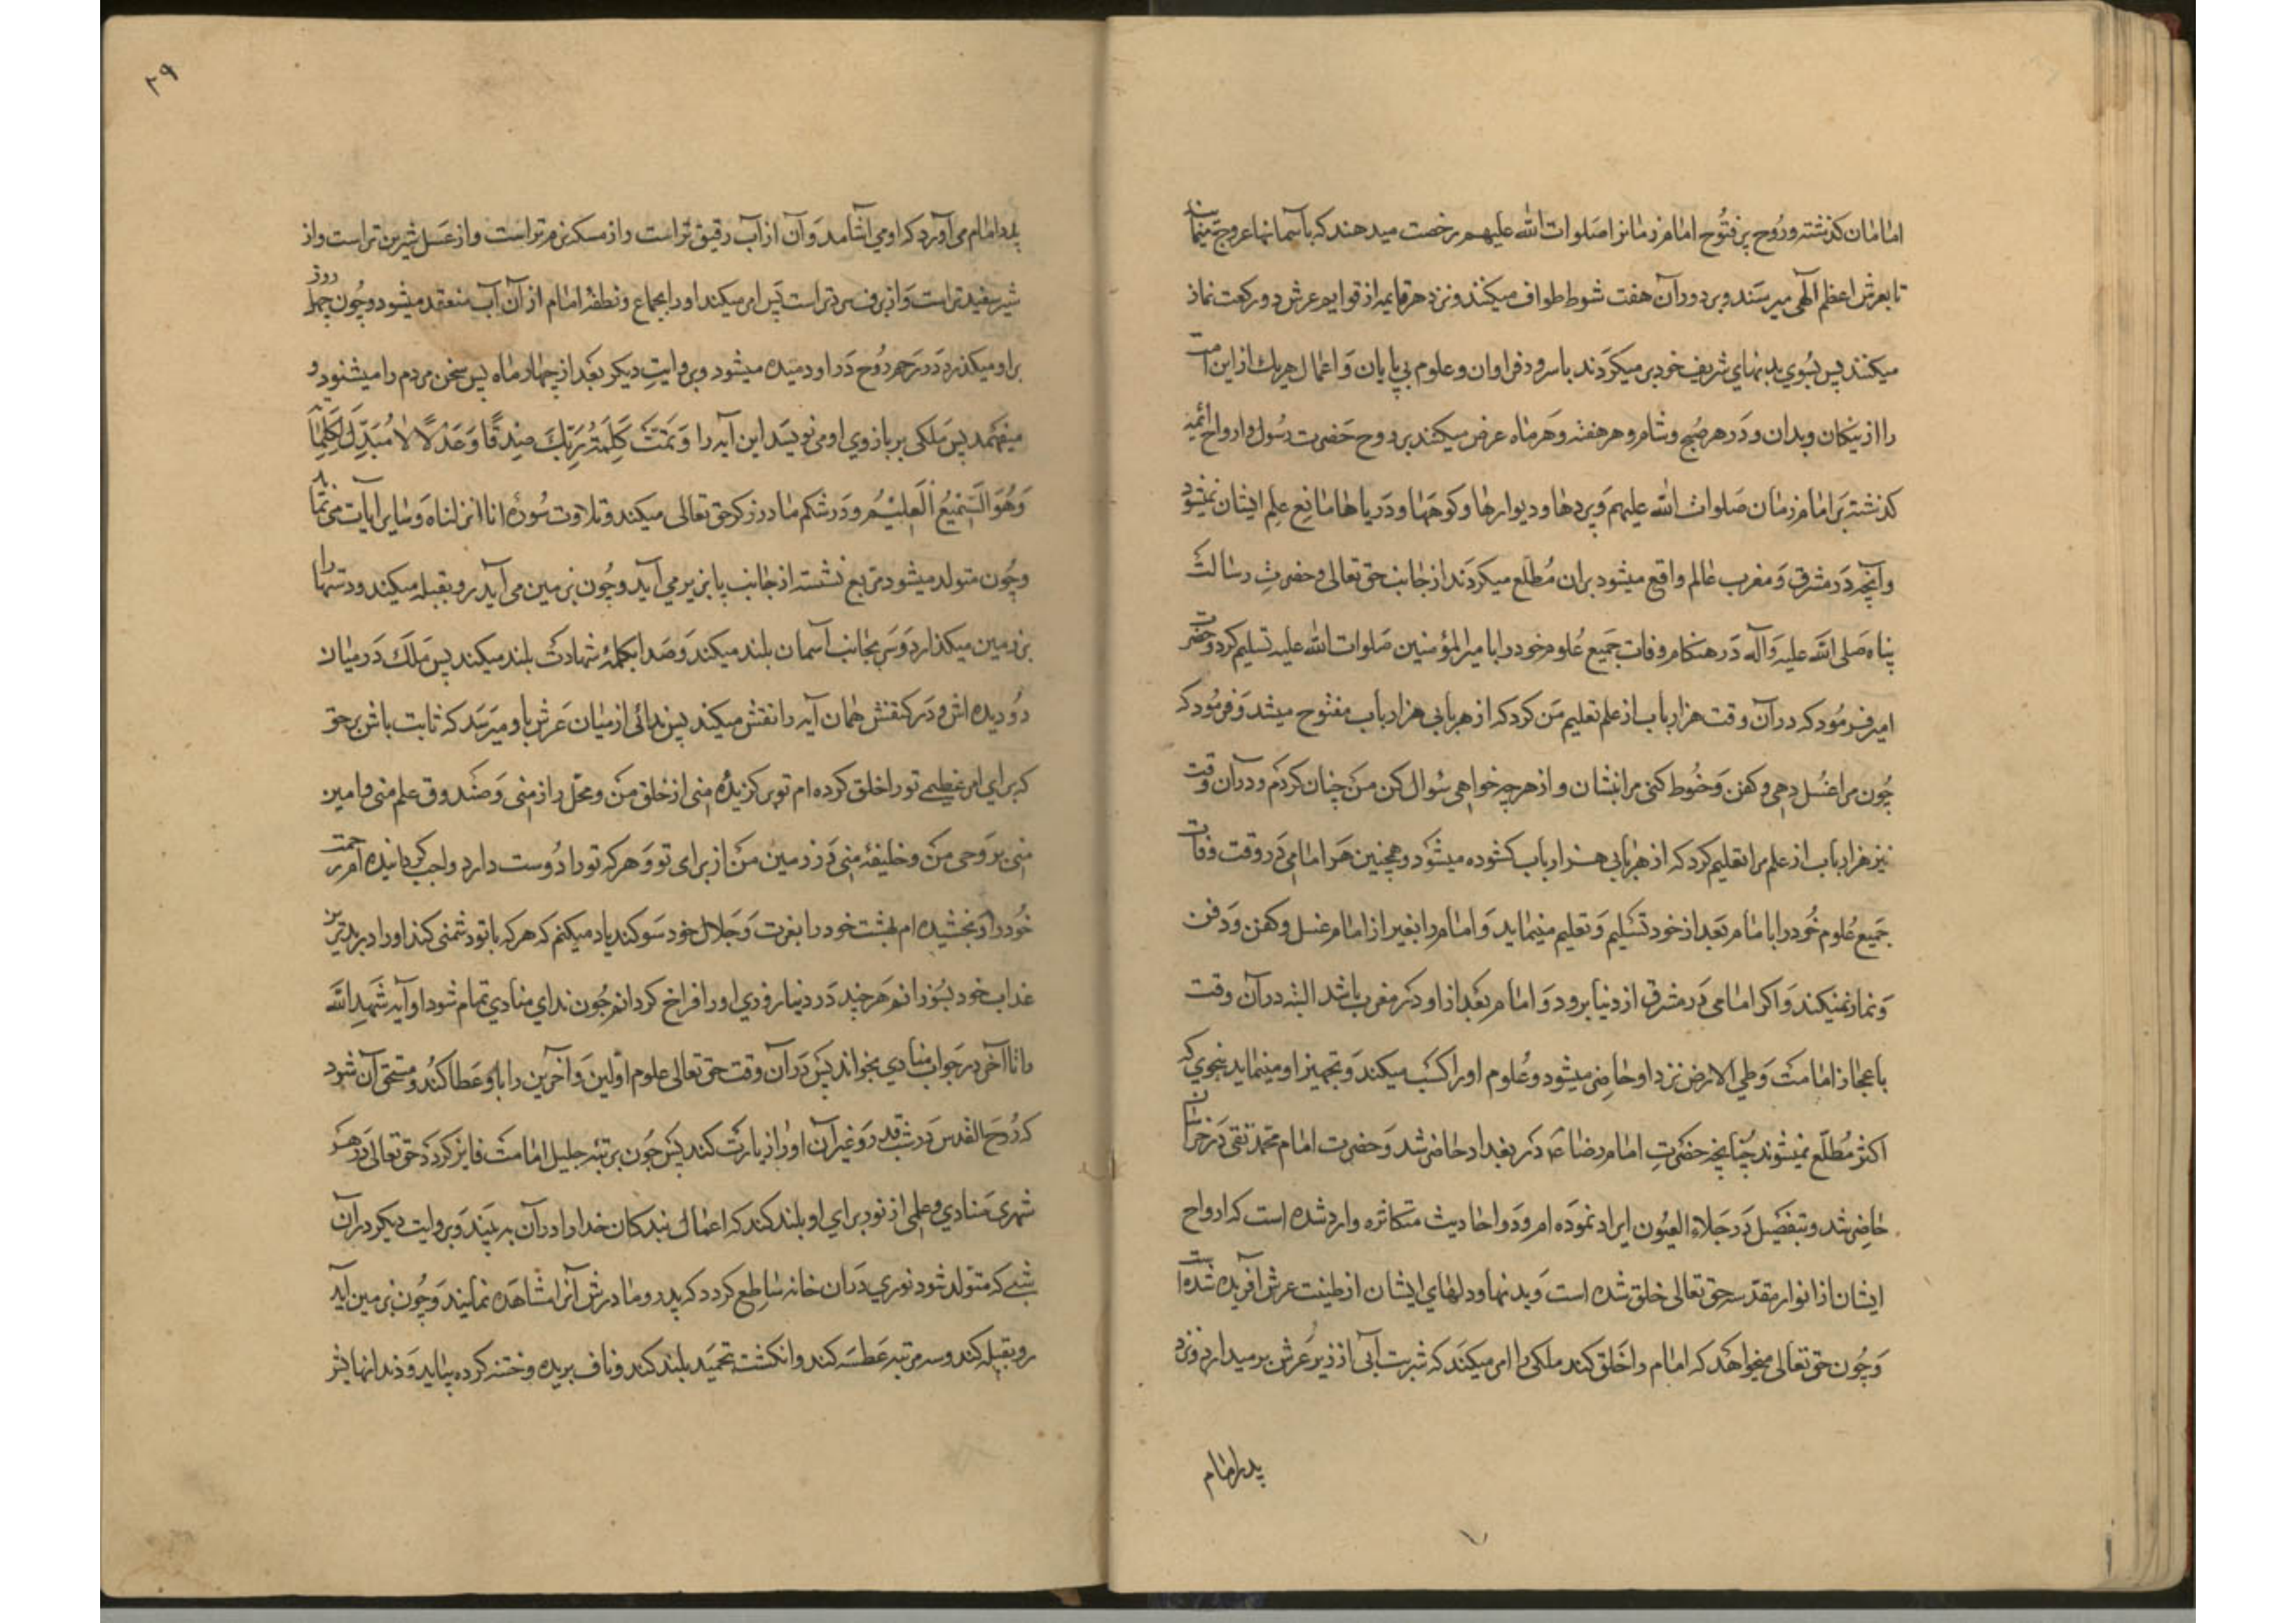 امامان کذشته و روح پر فتوح امام زمانرا صلوات الله علیهم رخصت میدهند که باسمانها عروج مینمایند
تا بعرش اعظم آلهی میرسند و بر دور آن هفت شوط طواف میکنند و نزد هر قایمه از قوایم عرش دو رکعت نماز
میکنند پس بسوی بدنهای شریف خود بر میکردند با سرود فراوان و علوم بی پایان و اعمال هر یك از این امت
را از نیکان و بدان و در هر صبح و شام و هر هفته و هر ماه عرض میکنند بر روح حضرت رسول و ارواح ائمه
کذشته بر امام زمان صلوات الله علیهم و پردها و دیوارها و کوهها و دریاها مانع علم ایشان نمیشود
و آنچه در مشرق و مغرب عالم واقع میشود بران مطلع میکردند از جانب حق تعالی و حضرت رسالت
پناه صلی الله علیه و آله در هنکام وفات جمیع علوم خود را با میر المؤمنین صلوات الله علیه تسلیم کرد و حضرت
امیر فرمود که در آن وقت هزار باب از علم تعلیم من کرد که از هر بابی هزار باب مفتوح میشد و فرمود که
چون مرا غسل دهی و کفن و حنوط کنی مرا بنشان و از هر چه خواهی سؤال کن من چنان کردم و در آن وقت
نیز هزار باب از علم مرا تعلیم کرد که از هر بابی هزار باب کشوده میشود و همچنین هر امامی در وقت وفات
جمیع علوم خود را با مام بعد از خود تسلیم و تعلیم مینماید و امام را بغیر از امام غسل و کفن و دفن
و نماز نمیکند و اکر امامی در مشرق از دنیا برود و امام بعد از او در مغرب باشد البته در آن وقت
باعجاز امامت و طی الارض نزد او حاضر میشود و علوم او را کسب میکند و تجهیز او مینماید بنحوی که
اکثر مطلع نمیشوند چنانچه حضرت امام رضا ع در بغداد حاضر شد و حضرت امام محمد تقی در خراسان
حاضر شد و بتفصیل در جلاء العیون ایراد نموده ام و در احادیث متکاثره وارد شده است که ارواح
ایشان از انوار مقدسه حق تعالی خلق شده است و بدنها و دلهای ایشان از طینت عرش آفریده شده است
و چون حق تعالی میخواهد که امام را خلق کند ملکی را امر میکند که شربت آبی از زیر عرش بر میدارد و نزد
پدر امام
۲۹
پدر امام می آورد که او می آشامد و آن از آب رقیق تر است و از مسکه نرم تر است و از عسل شیرین تر است و از
شیر سفید تر است و از برف سرد تر است پس امر میکند او را بجماع و نطفه امام از آن آب منعقد میشود و چون چهل روز
بر او میکذرد در رحم روح در او دمیده میشود و بروایت دیکر بعد از چهار ماه پس سخن مردم را میشنود و
میفهمد پس ملکی بر بازوی او می نویسد این آیه را وَ تَمَّت کَلِمَةُ رَبِّكَ صِدقًا وَ عَدلًا لا مُبَدِّلَ لِکَلِماتِه
وَ هُوَ السَّمیعُ العَلیمُ و در شکم مادر ذکر حق تعالی میکند و تلاوت سوره انا انزلناه و سایر آیات می نماید
و چون متولد میشود مربع نشسته از جانب پا بزیر می آید و چون بزمین می آید رو بقبله میکند و دستها را
بر زمین میکذارد و سر بجانب آسمان بلند میکند و صدا بکلمه شهادت بلند میکند پس ملك در میان
دو دیده اش و در کتفش همان آیه را نقش میکند پس ندائی از میان عرش باو میرسد که ثابت باش بر حق
که برای امر عظیمی تو را خلق کرده ام تو بر کزیده منی از خلق من و محل راز منی و صندوق علم منی و امین
منی بر وحی من و خلیفه منی در زمین من از برای تو و هر که تو را دوست دارد واجب کردانیده ام رحمت
خود را و بخشیده ام بهشت خود را بعزت و جلال خود سوکند یاد میکنم که هر که با تو دشمنی کند او را در بدترین
عذاب خود بسوزانم هر چند در دنیا روزی او را فراخ کردانم چون ندای منادی تمام شود او آیه شهد الله
را تا آخر در جواب منادی بخواند پس در آن وقت حق تعالی علوم اولین و آخرین را باو عطا کند و مستحق آن شود
که روح القدس در شب قدر و غیر آن او را زیارت کند پس چون بر تبه جلیل امامت فایز کردد حق تعالی در هر
شهری منادی و علمی از نور برای او بلند کند که اعمال بندکان خدا را در آن به بیند و بروایت دیکر در آن
شبی که متولد شود نوری در ان خانه ساطع کردد که پدر و مادرش آنرا مشاهده نمایند و چون بزمین آید
رو بقبله کند و سه مرتبه عطسه کند و انکشت بتحمید بلند کند و ناف بریده و ختنه کرده بیاید و دندانها پیش